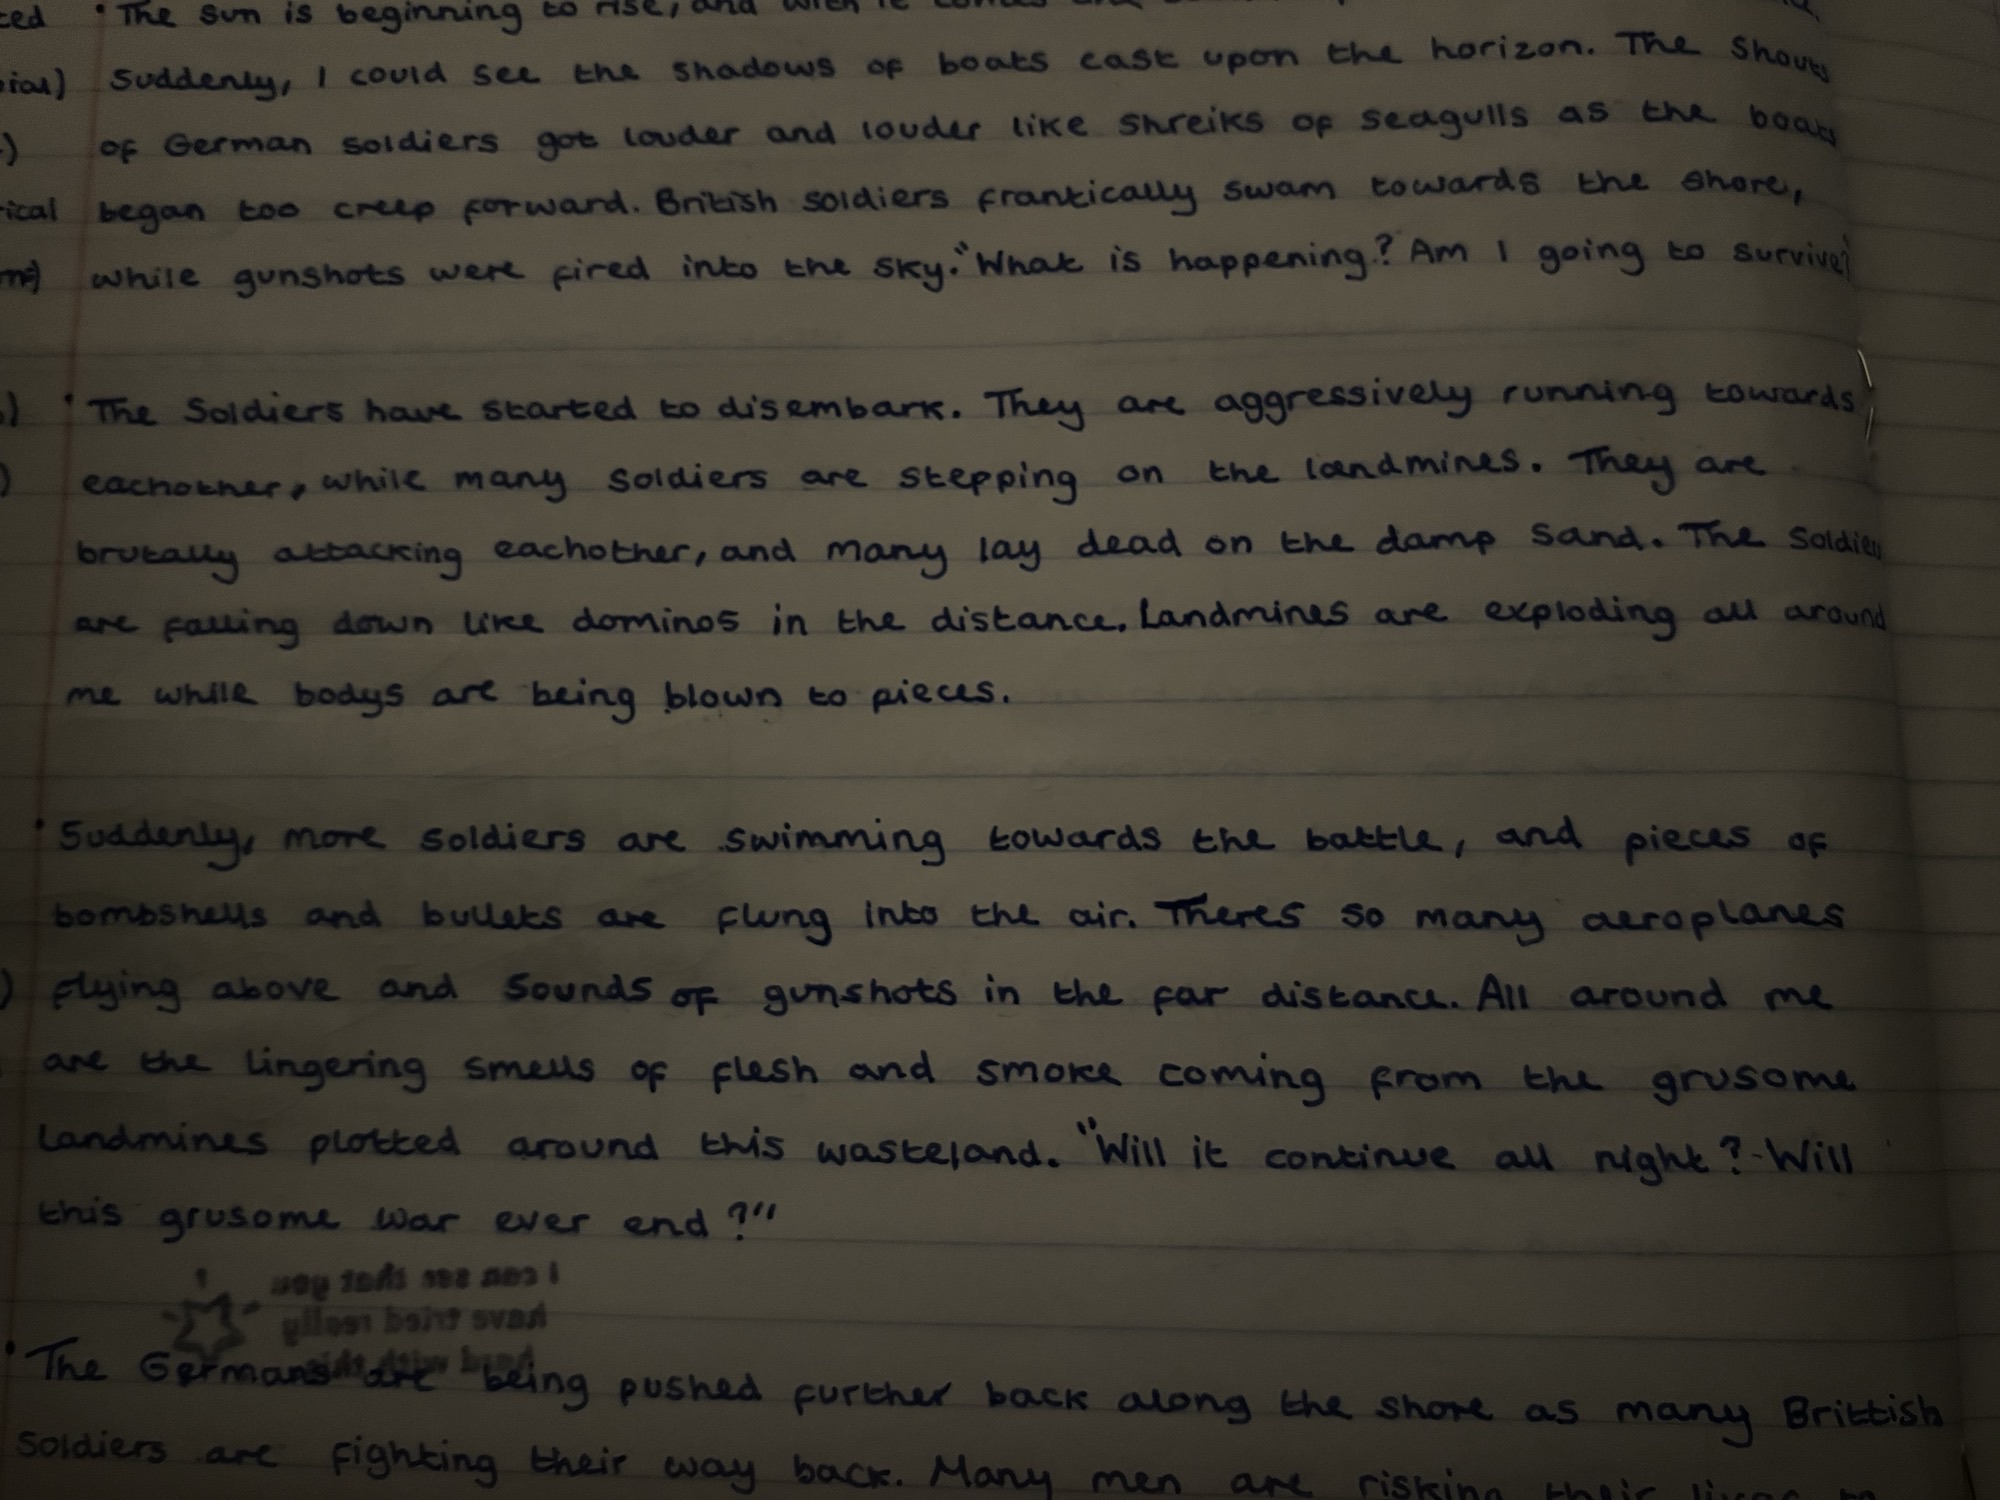 ced • The sun is beginning to rise, and with it comes
Suddenly, I could see the shadows of boats cast upon the horizon. The shouts
of German soldiers got louder and louder like shreiks of seagulls as the boats
rical began too creep forward. British soldiers frantically swam towards the shore,
while gunshots were fired into the sky. "What is happening? Am I going to survive?
• The Soldiers have started to disembark. They are aggressively running towards
eachother, while many soldiers are stepping on the landmines. They are
brutally attacking eachother, and many lay dead on the damp sand. The Soldiers
are falling down like dominos in the distance. Landmines are exploding all around
me while bodys are being blown to pieces.
• Suddenly, more soldiers are swimming towards the battle, and pieces of
bombshells and bullets are flung into the air. Theres so many aeroplanes
flying above and sounds of gunshots in the far distance. All around me
are the lingering smells of flesh and smoke coming from the grusome
landmines plotted around this wasteland. "Will it continue all night? Will
this grusome war ever end?"
I can see that you
have tried really
hard with this
• The Germans are being pushed further back along the shore as many Brittish
soldiers are fighting their way back. Many men are risking their lives to